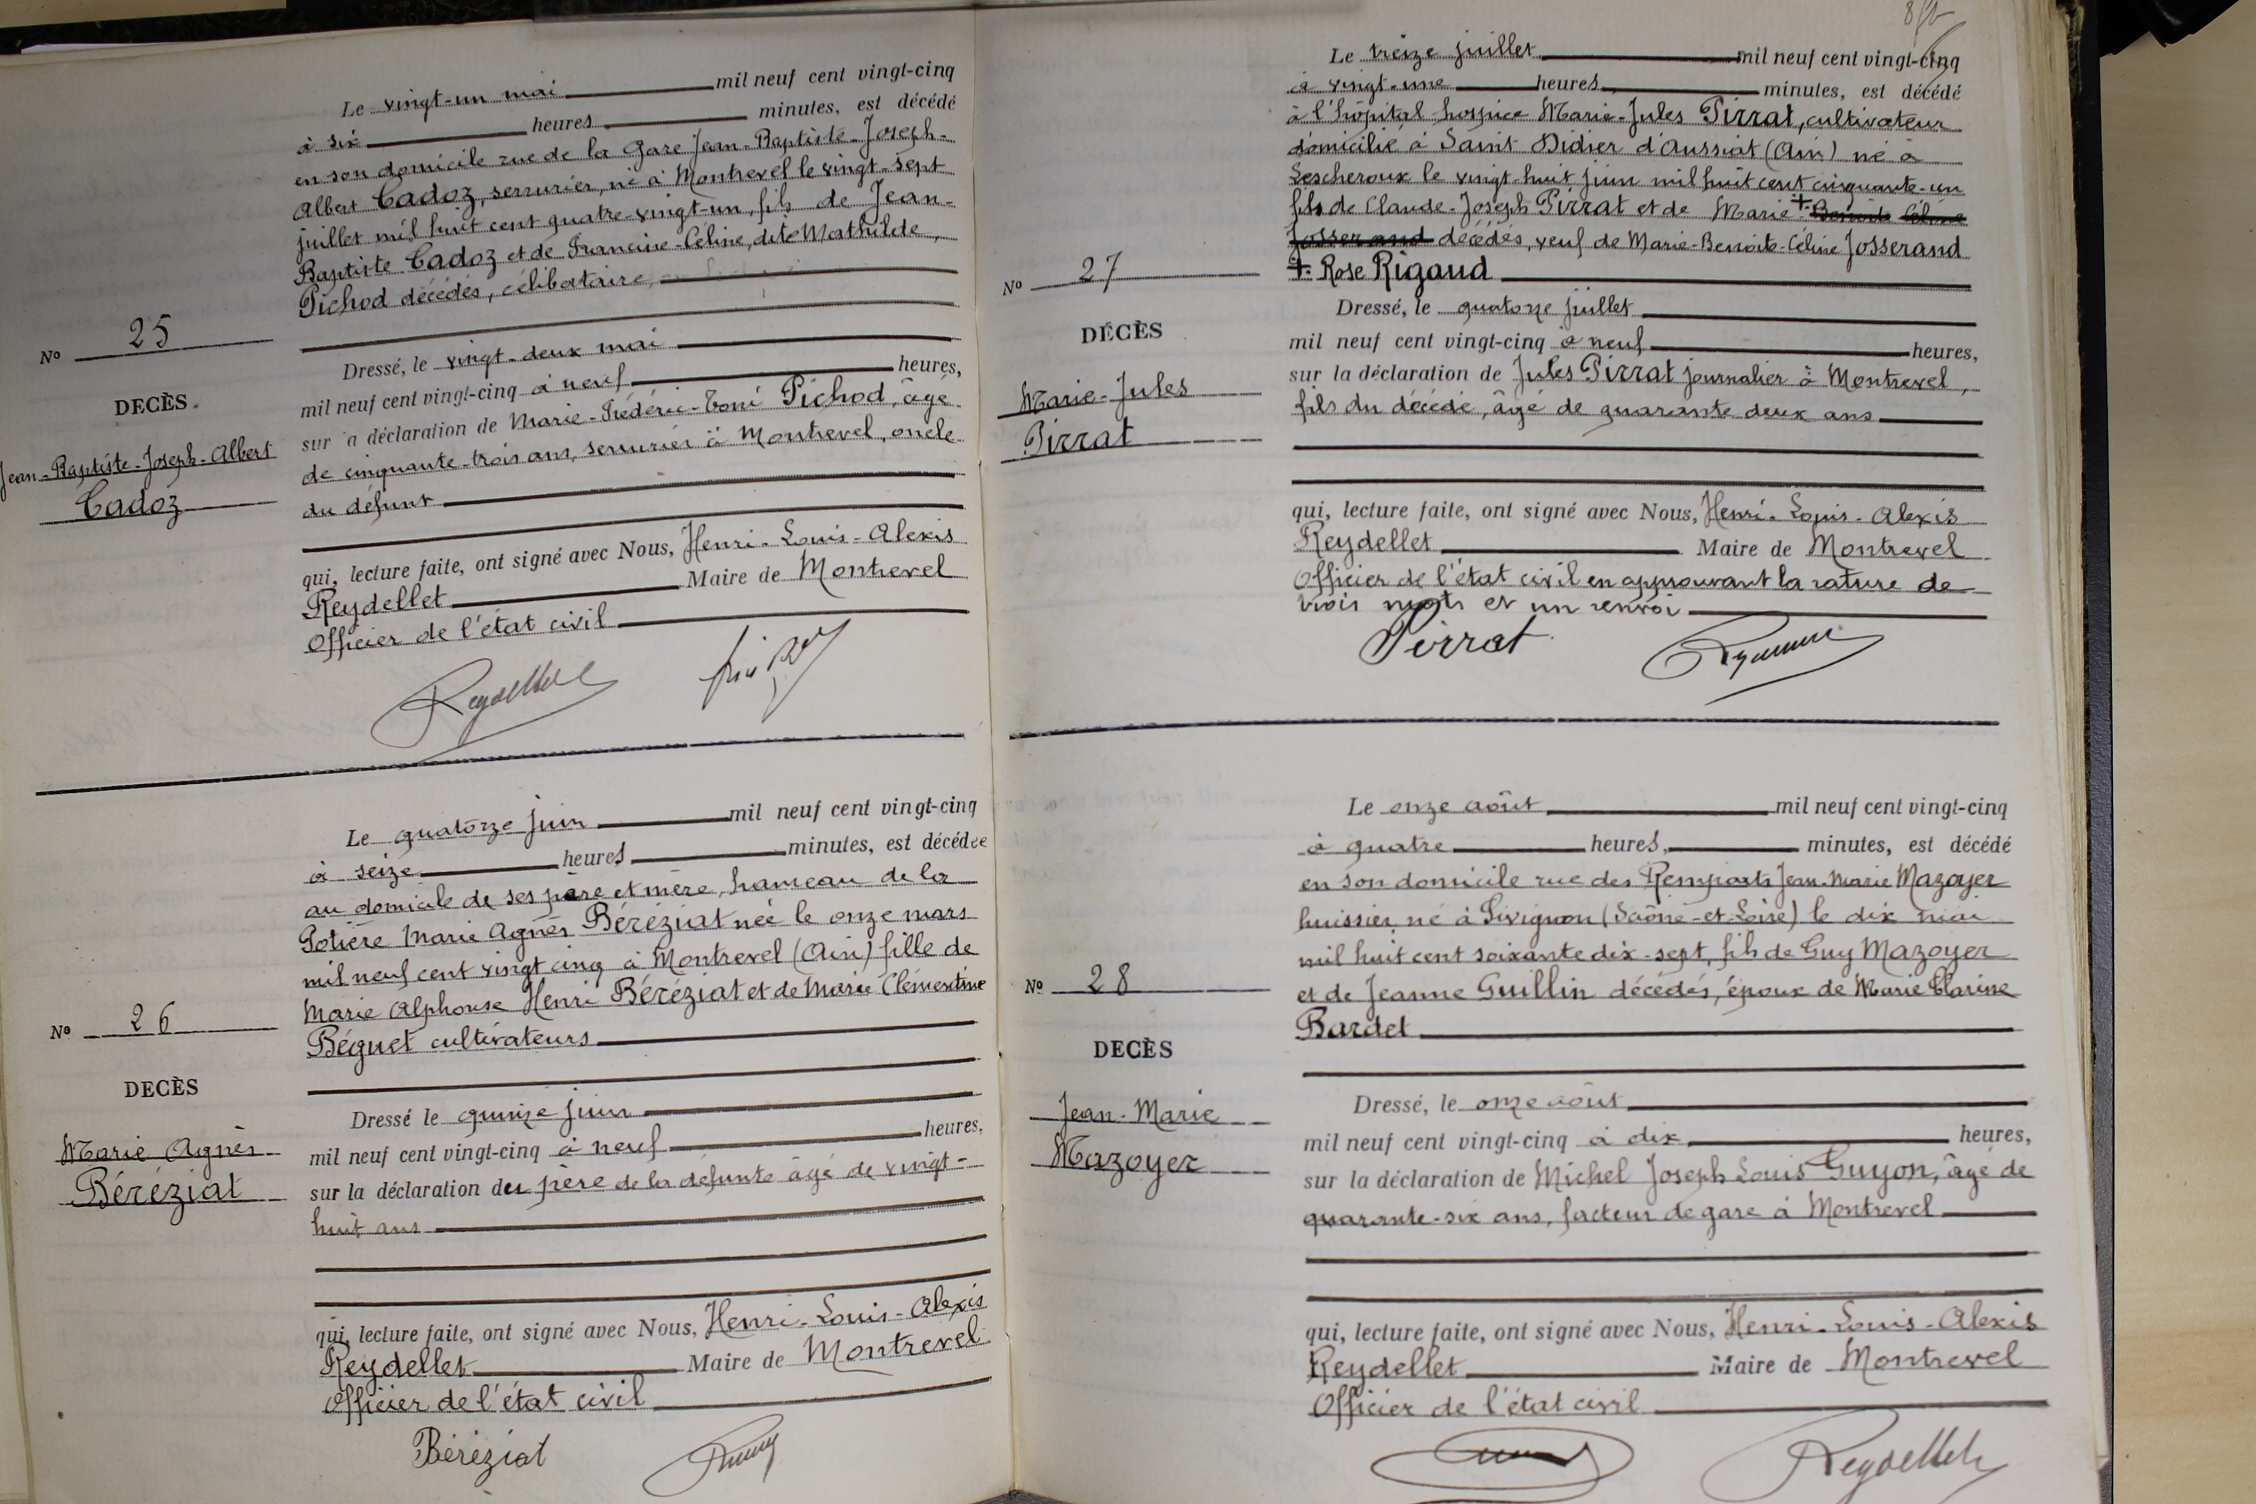 Le vingt-un mai mil neuf cent vingt-cinq
à six heures minutes, est décédé
en son domicile rue de la Gare Jean-Baptiste-Joseph-
Albert Cadoz, serrurier, né à Montrevel le vingt-sept
juillet mil huit cent quatre-vingt-un, fils de Jean-
Baptiste Cadoz et de Francine-Céline, dite Mathilde,
Pichod décédés, célibataire,
No 25
DECÈS.
Jean-Baptiste-Joseph-Albert
Cadoz
Dressé, le vingt-deux mai
mil neuf cent vingt-cinq à neuf heures,
sur a déclaration de Marie-Frédéric-Toni Pichod, âgé
de cinquante-trois ans, serrurier à Montrevel, oncle
du défunt
qui, lecture faite, ont signé avec Nous, Henri-Louis-Alexis
Reydellet Maire de Montrevel
Officier de l'état civil
Reydellet
Le quatorze juin mil neuf cent vingt-cinq
à seize heures minutes, est décédée
au domicile de ses père et mère, hameau de la
Potière Marie Agnès Béréziat née le onze mars
mil neuf cent vingt cinq à Montrevel (Ain) fille de
Marie Alphonse Henri Béréziat et de Marie Clémentine
Béguet cultivateurs
No 26
DECÈS
Marie Agnès
Béréziat
Dressé le quinze juin
mil neuf cent vingt-cinq à neuf heures,
sur la déclaration du père de la défunte âgé de vingt-
huit ans
qui, lecture faite, ont signé avec Nous, Henri-Louis-Alexis
Reydellet Maire de Montrevel
Officier de l'état civil
Béréziat
Le treize juillet mil neuf cent vingt-cinq
à vingt-une heures, minutes, est décédé
à l'hôpital hospice Marie-Jules Pirrat, cultivateur
domicilié à Saint Didier d'Aussiat (Ain) né à
Lescheroux le vingt-huit juin mil huit cent cinquante-un
fils de Claude-Joseph Pirrat et de Marie + Benoite Céline
Josserand décédés, veuf de Marie-Benoite-Céline Josserand
+ Rose Rigaud
No 27
DÉCÈS
Marie-Jules
Pirrat
Dressé, le quatorze juillet
mil neuf cent vingt-cinq à neuf heures,
sur la déclaration de Jules Pirrat journalier à Montrevel,
fils du décédé, âgé de quarante deux ans
qui, lecture faite, ont signé avec Nous, Henri-Louis-Alexis
Reydellet Maire de Montrevel
Officier de l'état civil en approuvant la rature de
trois mots et un renvoi
Pirrat
Le onze août mil neuf cent vingt-cinq
à quatre heures, minutes, est décédé
en son domicile rue des Remparts Jean-Marie Mazoyer
huissier, né à Pivignon (Saône-et-Loire) le dix mai
mil huit cent soixante dix-sept, fils de Guy Mazoyer
et de Jeanne Guillin décédés, époux de Marie Clarine
Bardet
No 28
DECÈS
Jean-Marie
Mazoyer
Dressé, le onze août
mil neuf cent vingt-cinq à dix heures,
sur la déclaration de Michel Joseph Louis Guyon, âgé de
quarante-six ans, facteur de gare à Montrevel
qui, lecture faite, ont signé avec Nous, Henri-Louis-Alexis
Reydellet Maire de Montrevel
Officier de l'état civil
Reydellet